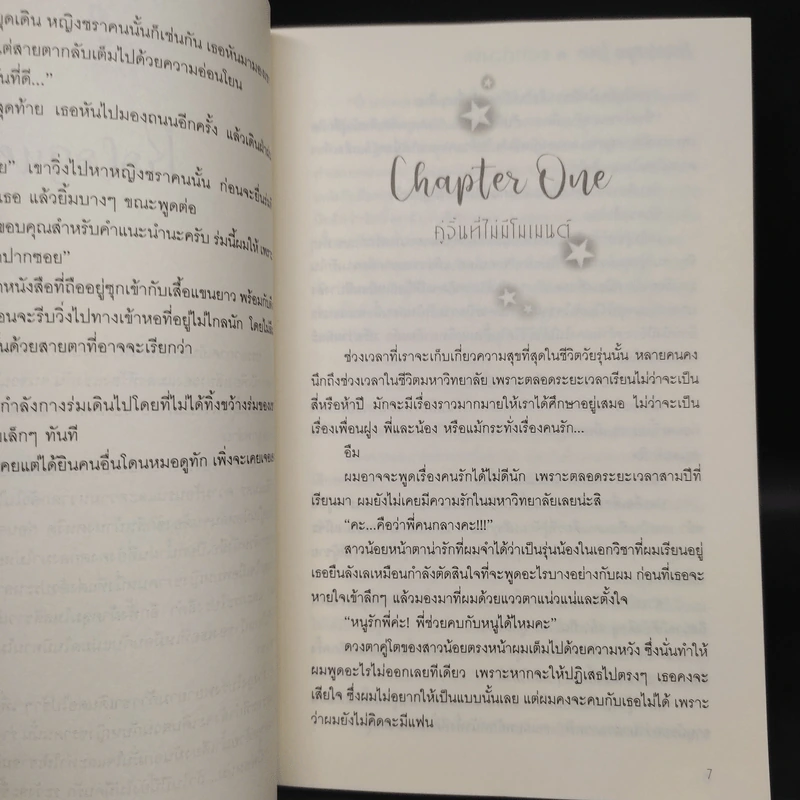 พุดเดิน หญิงชราคนนั้นก็เช่นกัน เธอหันมามอง
แต่สายตากลับเต็มไปด้วยความอ่อนโยน
นที่ดี...”
สุดท้าย เธอหันไปมองถนนอีกครั้ง แล้วเดิน
ย” เขาวิ่งไปหาหญิงชราคนนั้น ก่อนจะยื่น
เธอ แล้วยิ้มบางๆ ขณะพูดต่อ
ขอบคุณสำหรับคำแนะนำนะครับ ร่มนี้ผมให้ เพราะ
าปากซอย”
หนังสือที่ถืออยู่ซุกเข้ากับเสื้อแขนยาว พร้อมกับ
อนจะรีบวิ่งไปทางเข้าหอที่อยู่ไม่ไกลนัก โดยไม่
นด้วยสายตาที่อาจจะเรียกว่า
กำลังกางร่มเดินไปโดยที่ไม่ได้ทิ้งขว้างร่มของ
เล็กๆ ทันที
เคยแต่ได้ยินคนอื่นโดนหมอดูทัก เพิ่งจะเคยเจอ
Chapter One
คู่จิ้นที่ไม่มีโมเมนต์
ช่วงเวลาที่เราจะเก็บเกี่ยวความสุขที่สุดในชีวิตวัยรุ่นนั้น หลายคนคง
นึกถึงช่วงเวลาในชีวิตมหาวิทยาลัย เพราะตลอดระยะเวลาเรียนไม่ว่าจะเป็น
สี่หรือห้าปี มักจะมีเรื่องราวมากมายให้เราได้ศึกษาอยู่เสมอ ไม่ว่าจะเป็น
เรื่องเพื่อนฝูง พี่และน้อง หรือแม้กระทั่งเรื่องคนรัก...
อืม
ผมอาจจะพูดเรื่องคนรักได้ไม่ดีนัก เพราะตลอดระยะเวลาสามปีที่
เรียนมา ผมยังไม่เคยมีความรักในมหาวิทยาลัยเลยน่ะสิ
“คะ...คือว่าพี่คนกลางคะ!!!”
สาวน้อยหน้าตาน่ารักที่ผมจำได้ว่าเป็นรุ่นน้องในเอกวิชาที่ผมเรียนอยู่
เธอยืนลังเลเหมือนกำลังตัดสินใจที่จะพูดอะไรบางอย่างกับผม ก่อนที่เธอจะ
หายใจเข้าลึกๆ แล้วมองมาที่ผมด้วยแววตาแน่วแน่และตั้งใจ
“หนูรักพี่ค่ะ! พี่ช่วยคบกับหนูได้ไหมคะ”
ดวงตาคู่โตของสาวน้อยตรงหน้าผมเต็มไปด้วยความหวัง ซึ่งนั่นทำให้
ผมพูดอะไรไม่ออกเลยทีเดียว เพราะหากจะให้ปฏิเสธไปตรงๆ เธอคงจะ
เสียใจ ซึ่งผมไม่อยากให้เป็นแบบนั้นเลย แต่ผมคงจะคบกับเธอไม่ได้ เพราะ
ว่าผมยังไม่คิดจะมีแฟน
7